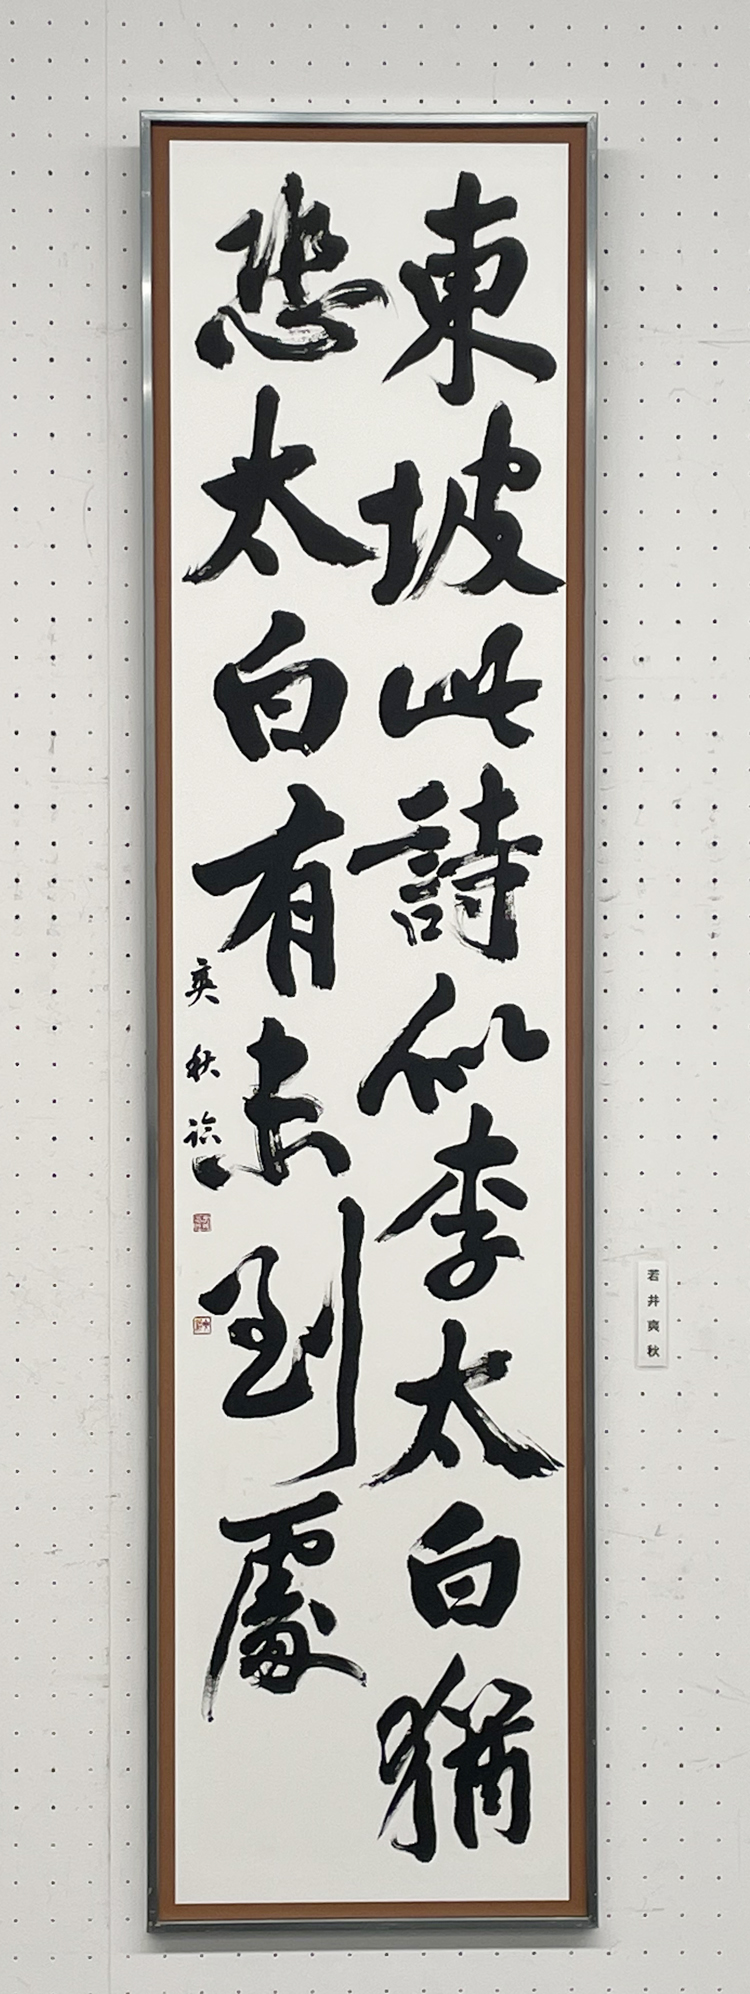 東坡此詩似李太白猶
恐太白有未到處
爽秋臨
若井爽秋